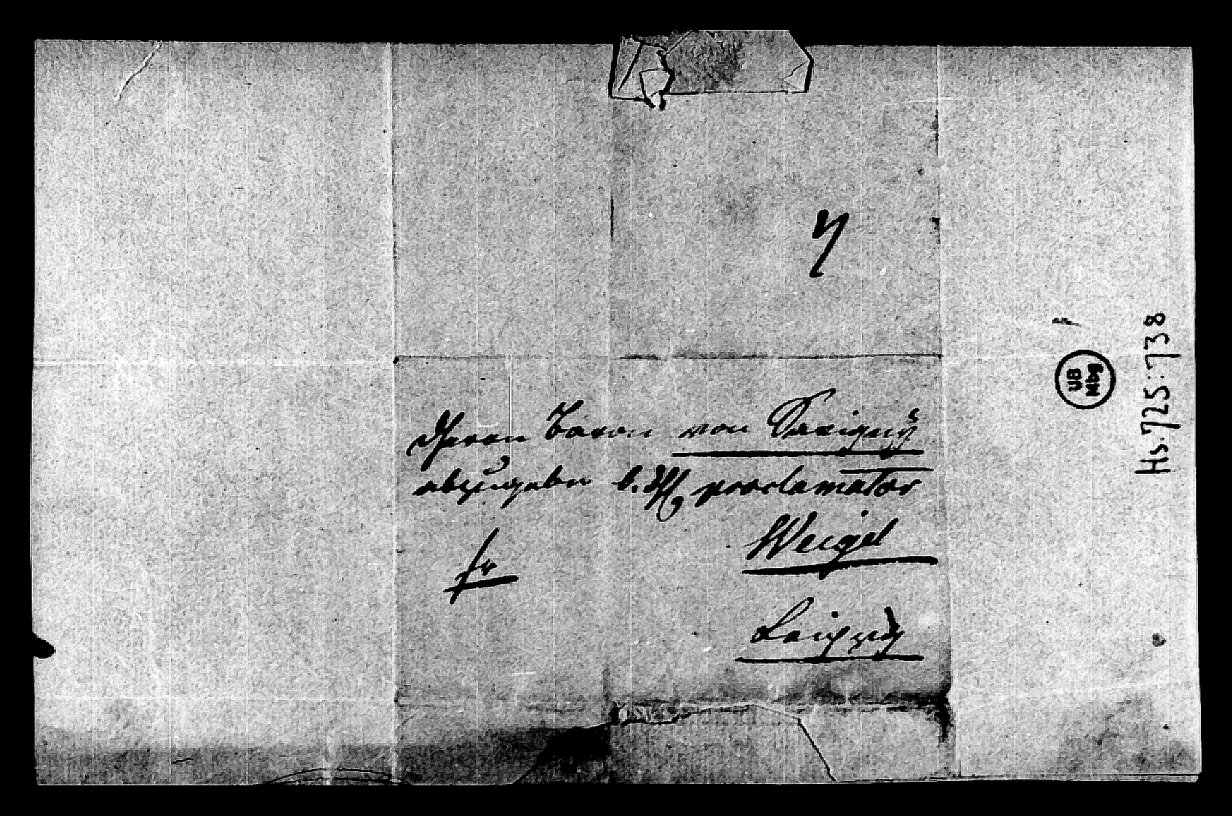 Herrn Baron von Savigny
abzugeben b. H. proclamator
fr
Weigel
Leipzig
UB
Mbg
Hs. 725:738